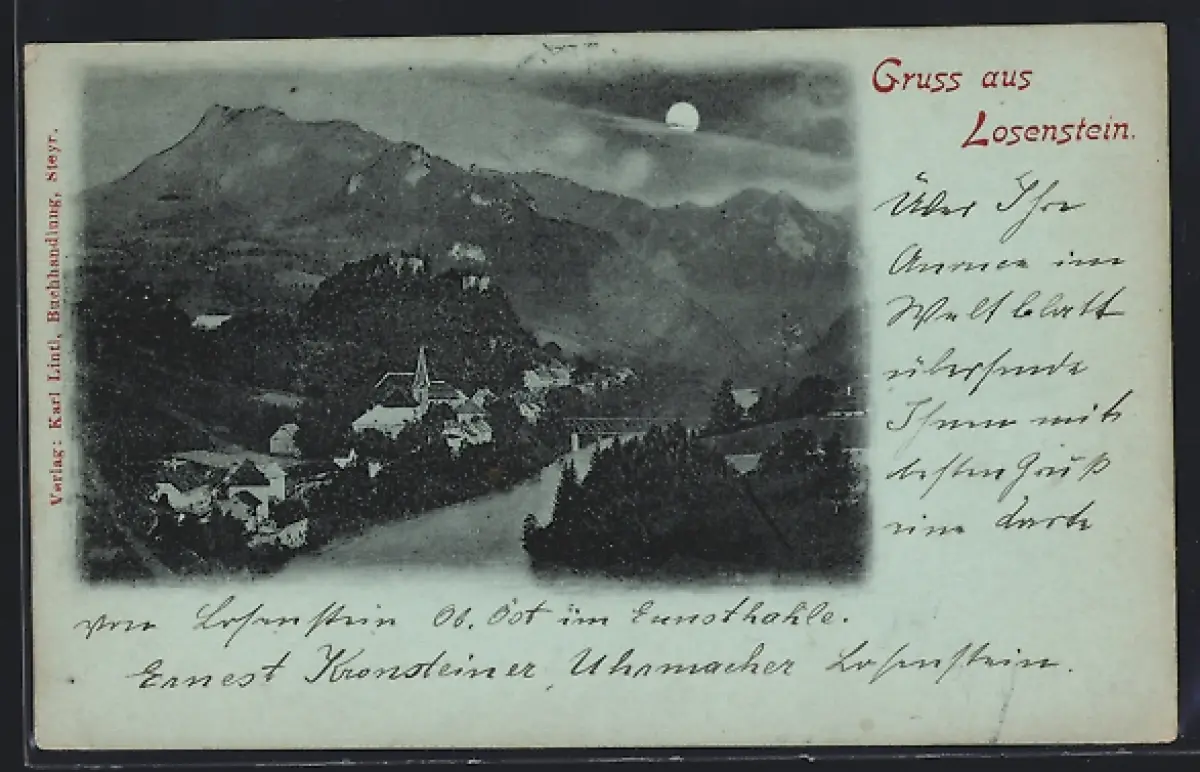 Gruss aus
Losenstein.
Über Ihre
Anonce im
Weltblatt
übersende
Ihnen mit
besten Gruß
eine Karte
von Losenstein Ob. Öst im
Ernest Kronsteiner, Uhrmacher Losenstein.
Verlag: Karl Lintl, Buchhandlung, Steyr.